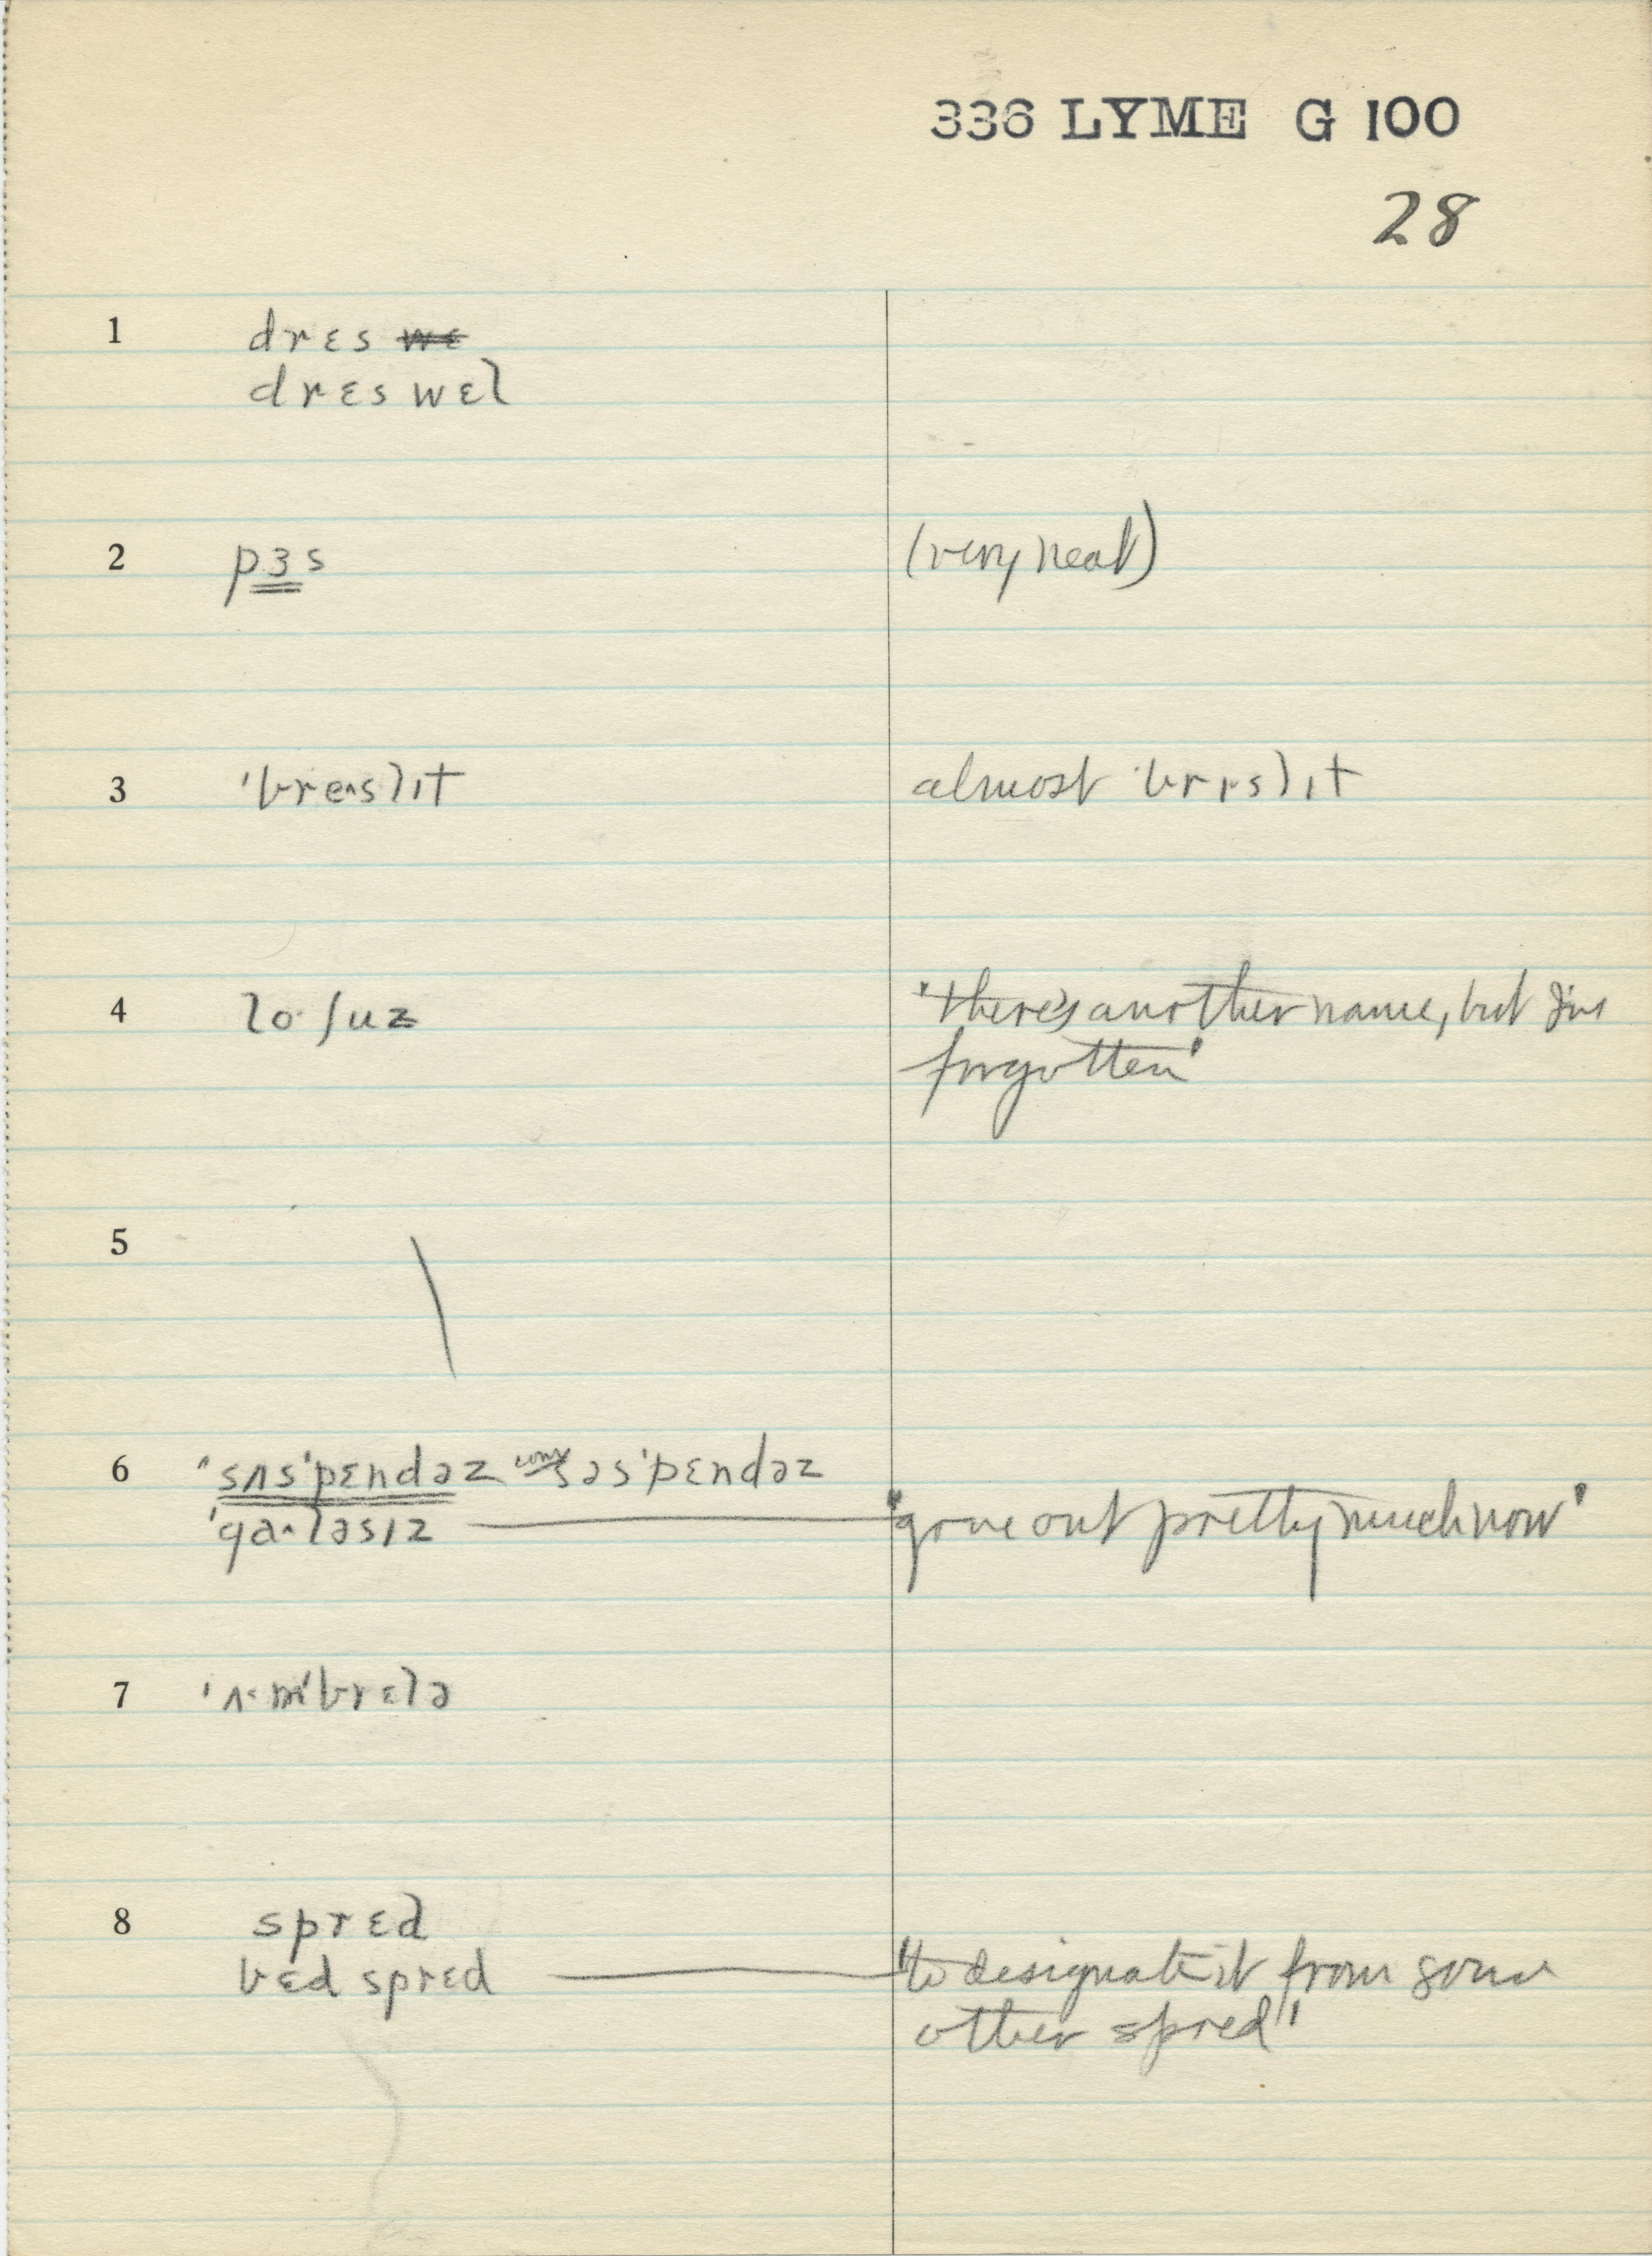 336 LYME G 100
28
1 drɛs w̶ɛ̶
drɛs wɛl
2 pɜs (very neat)
3 'bre˄slɪt almost 'brɪsl̩ɪt
4 lo· ʃuz 'there's another name, but I've
forgotten'
5 \
6 'sʌs'pɛndəz səs'pɛndəz
'ga˄ləsɪz 'gone out pretty much now'
7 'ʌ˂m'brɛlə
8 sprɛd
bɛd sprɛd "to designate it from some
other spred"